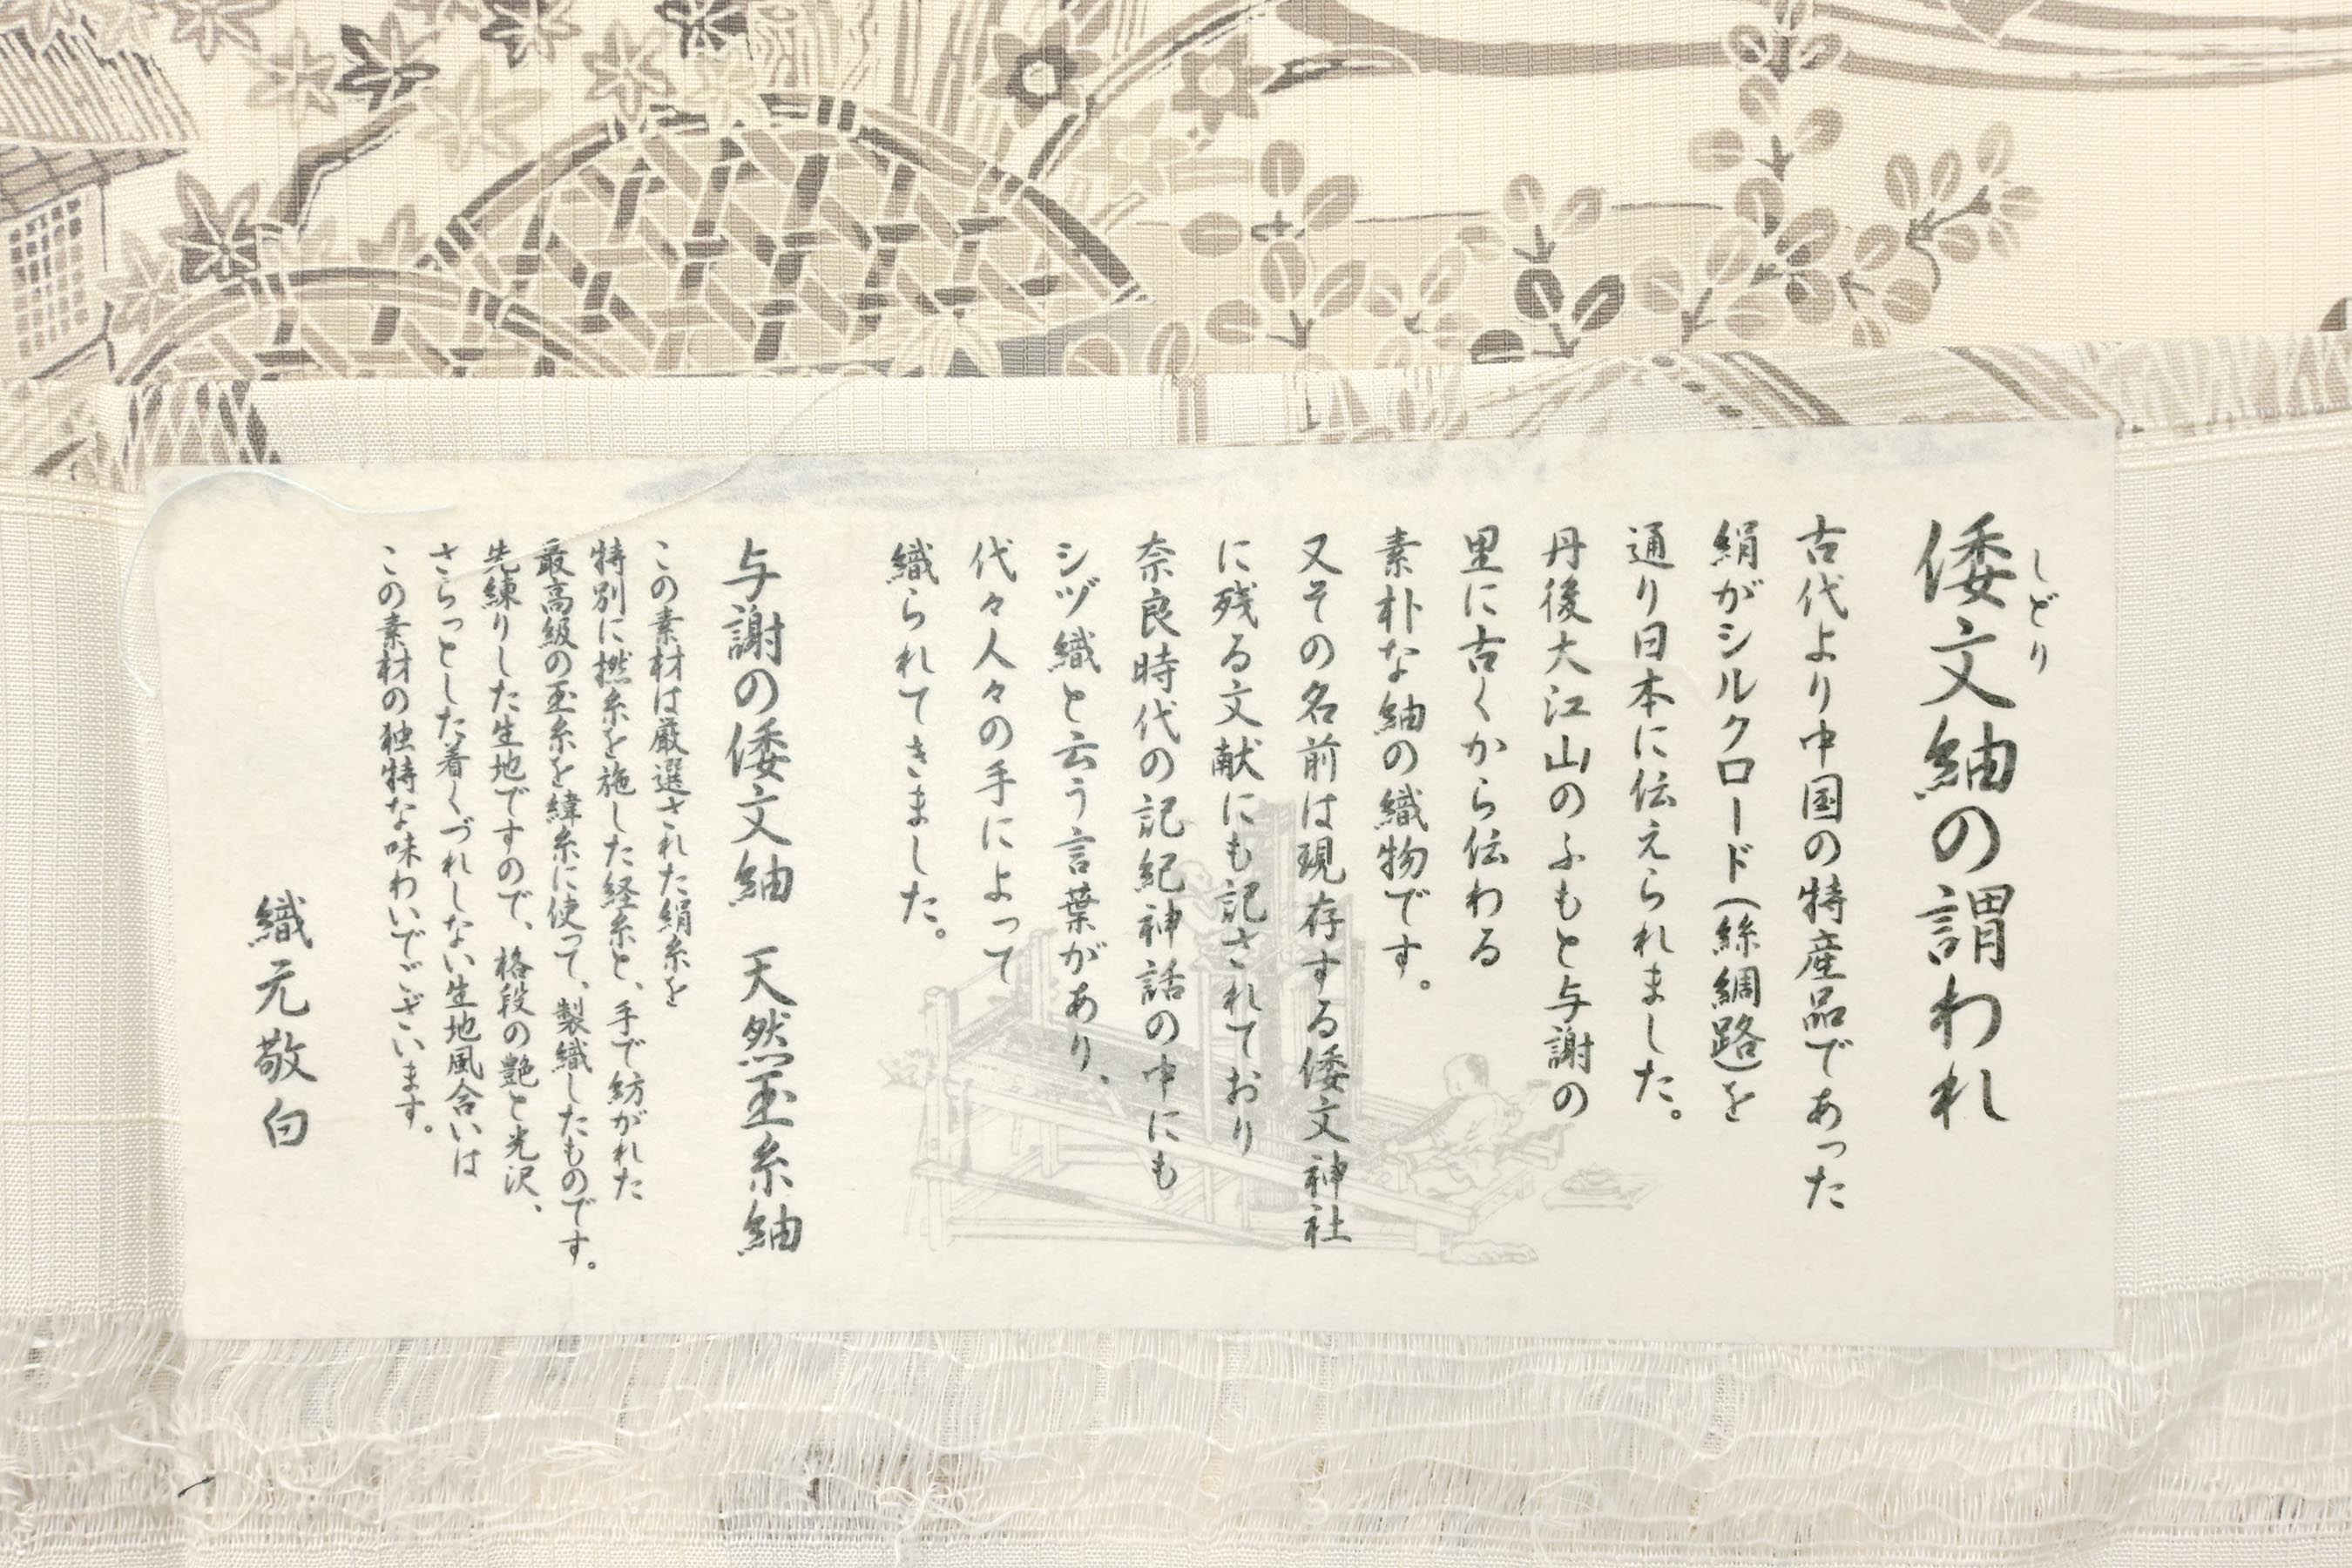 しどり
倭文紬の謂われ
古代より中国の特産品であった
絹がシルクロード(絲綢路)を
通り日本に伝えられました。
丹後大江山のふもと与謝の
里に古くから伝わる
素朴な紬の織物です。
又その名前は現存する倭文神社
に残る文献にも記されており
奈良時代の記紀神話の中にも
シヅ織と云う言葉があり、
代々人々の手によって
織られてきました。
与謝の倭文紬 天然玉糸紬
この素材は厳選された絹糸を
特別に撚糸を施した経糸と、手で紡がれた
最高級の玉糸を緯糸に使って、製織したものです。
先練りした生地ですので、格段の艶と光沢、
さらっとした着くづれしない生地風合いは
この素材の独特な味わいでございます。
織元敬白